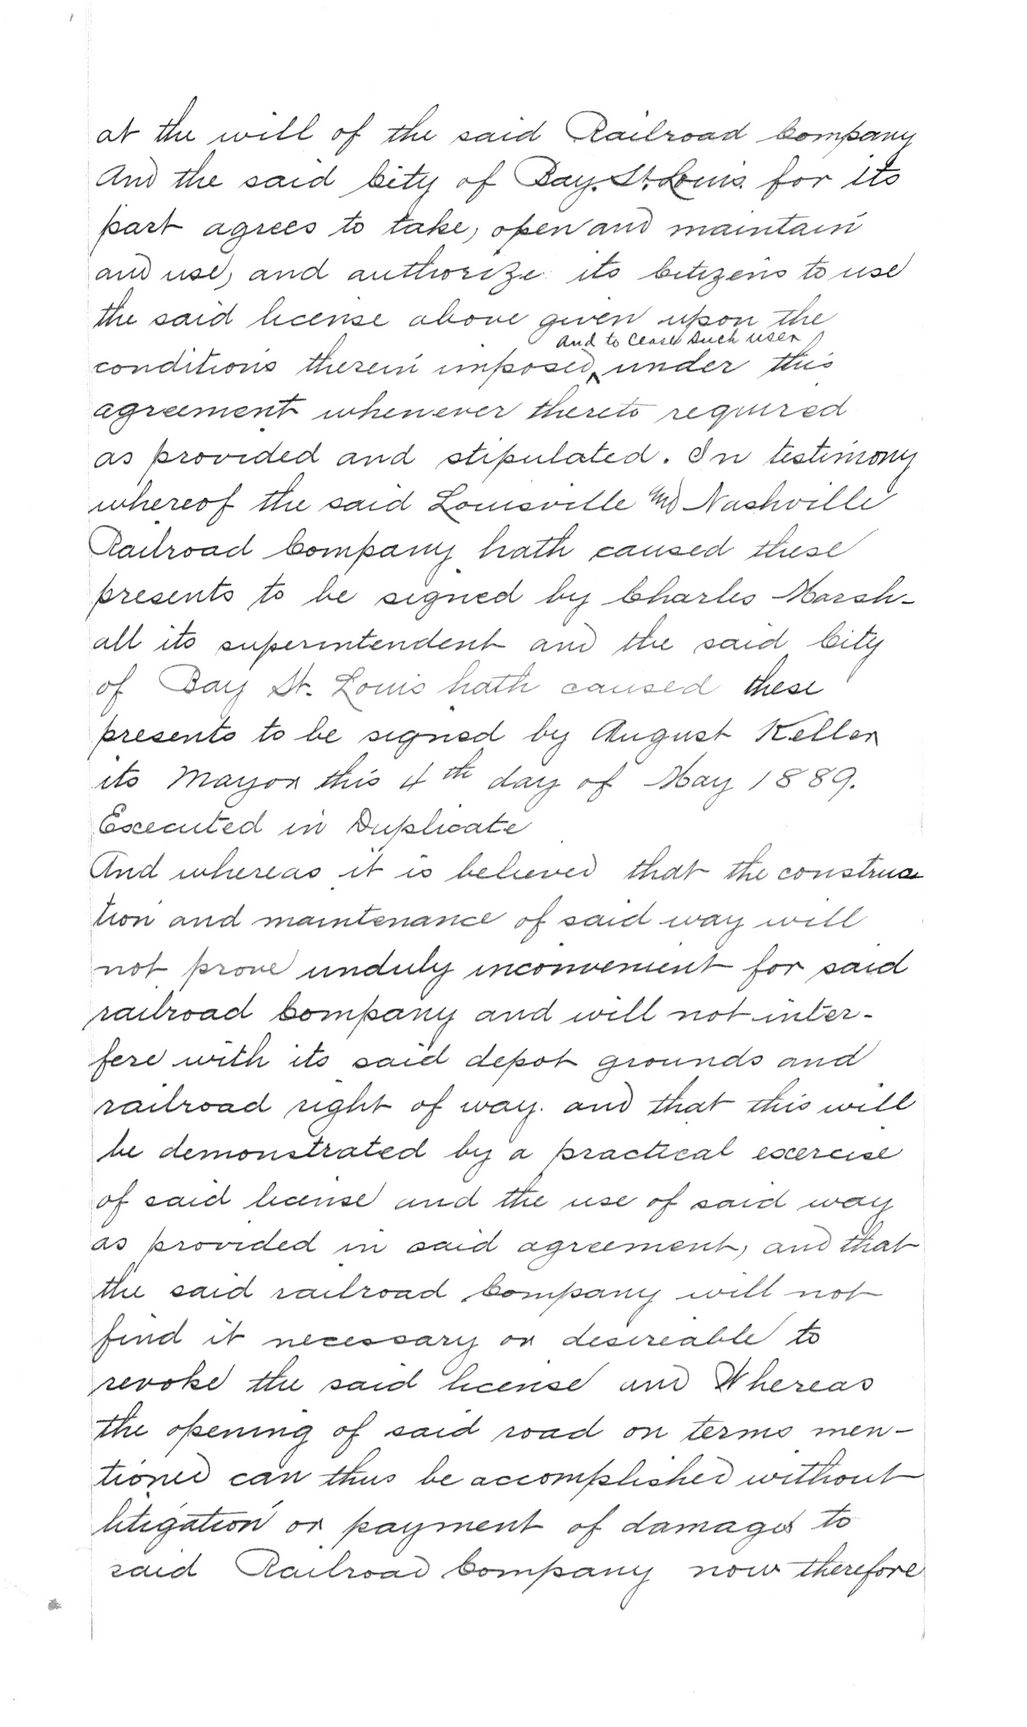 at the will of the said Railroad Company
And the said City of Bay. St. Louis. for its
part agrees to take, open and maintain
and use, and authorize its Citizens to use
the said license above given upon the
and to cease such user
conditions therein imposed, ^ under this
agreement whenever thereto required
as provided and stipulated. In testimony
whereof the said Louisville and Nashville
Railroad Company hath caused these
presents to be signed by Charles Marsh-
all its superintendent and the said City
of Bay St. Louis hath caused these
presents to be signed by August Keller
its Mayor this 4th day of May 1889.
Executed in Duplicate
And whereas it is believed that the construc
tion and maintenance of said way will
not prove unduly inconvenient for said
railroad Company and will not inter-
fere with its said depot grounds and
railroad right of way. and that this will
be demonstrated by a practical exercise
of said license and the use of said way
as provided in said agreement, and that
the said railroad Company will not
find it necessary or desireable to
revoke the said license and Whereas
the opening of said road on terms men-
tioned can thus be accomplished without
litigation or payment of damages to
said Railroad Company now therefore